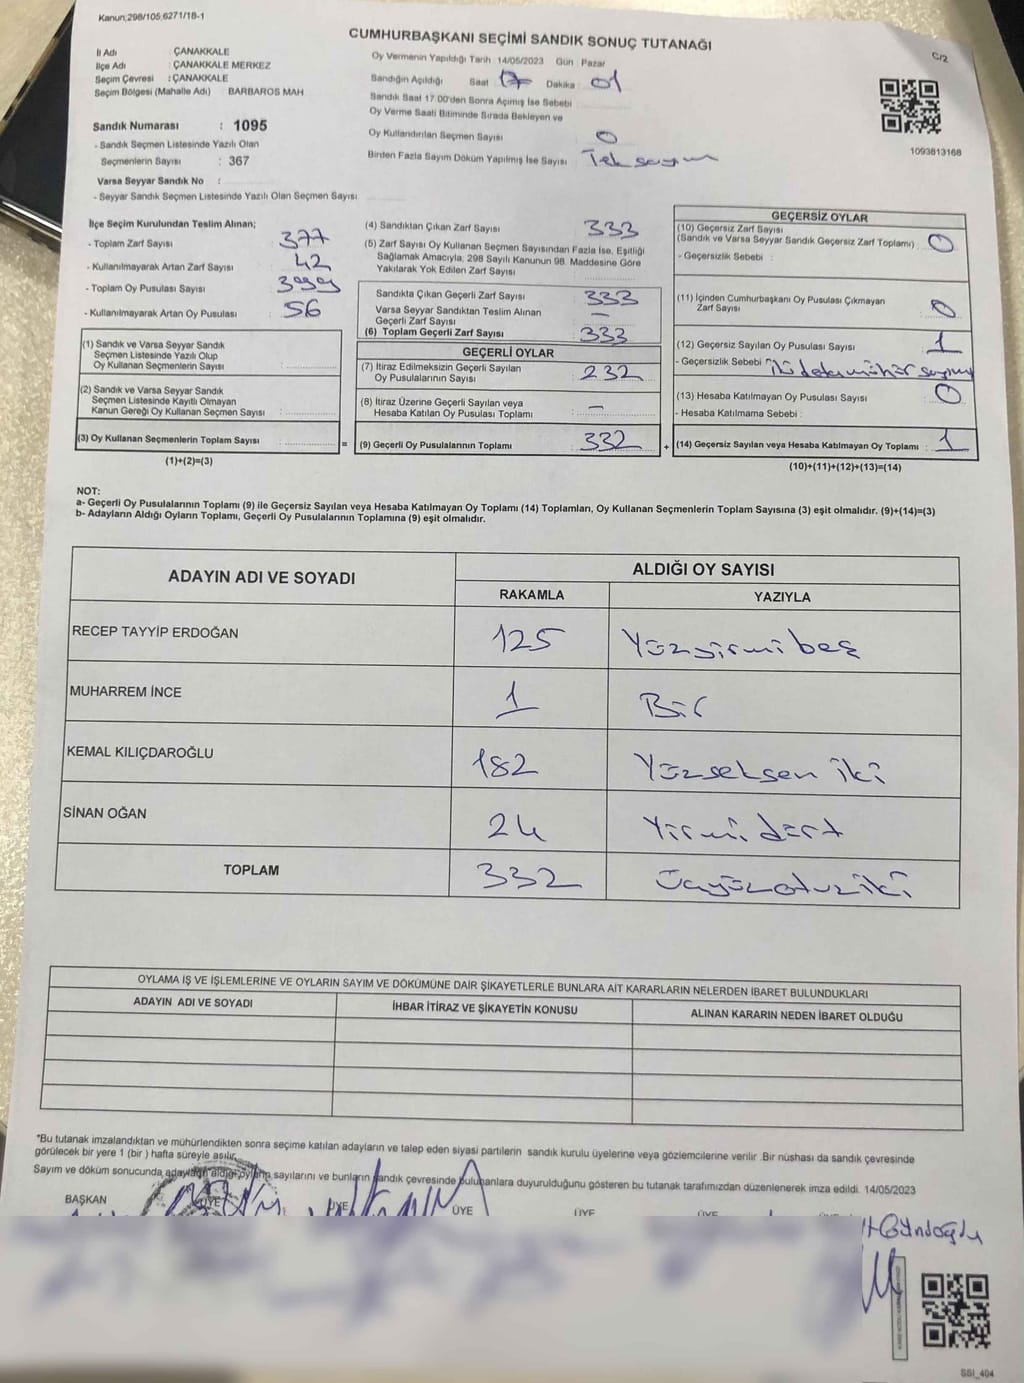 Kanun;298/105;6271/18-1
CUMHURBAŞKANI SEÇİMİ SANDIK SONUÇ TUTANAĞI
C/2
İl Adı : ÇANAKKALE
İlçe Adı : ÇANAKKALE MERKEZ
Seçim Çevresi : ÇANAKKALE
Seçim Bölgesi (Mahalle Adı) BARBAROS MAH
Oy Vermenin Yapıldığı Tarih 14/05/2023 Gün : Pazar
Sandığın Açıldığı Saat 17 Dakika : 01
Sandık Saat 17.00'den Sonra Açımış İse Sebebi
Oy Verme Saati Bitiminde Sırada Bekleyen ve
Oy Kullandırılan Seçmen Sayısı 0
Birden Fazla Sayım Döküm Yapılmış İse Sayısı : Tek sayım
1093813168
Sandık Numarası : 1095
- Sandık Seçmen Listesinde Yazılı Olan
Seçmenlerin Sayısı : 367
Varsa Seyyar Sandık No :
- Seyyar Sandık Seçmen Listesinde Yazılı Olan Seçmen Sayısı
İlçe Seçim Kurulundan Teslim Alınan;
- Toplam Zarf Sayısı 377
- Kullanılmayarak Artan Zarf Sayısı : 42
- Toplam Oy Pusulası Sayısı : 399
- Kullanılmayarak Artan Oy Pusulası : 56
(1) Sandık ve Varsa Seyyar Sandık
Seçmen Listesinde Yazılı Olup
Oy Kullanan Seçmenlerin Sayısı :
(2) Sandık ve Varsa Seyyar Sandık
Seçmen Listesinde Kayıtlı Olmayan
Kanun Gereği Oy Kullanan Seçmen Sayısı :
(3) Oy Kullanan Seçmenlerin Toplam Sayısı : =
(1)+(2)=(3)
(4) Sandıktan Çıkan Zarf Sayısı 333
(5) Zarf Sayısı Oy Kullanan Seçmen Sayısından Fazla İse, Eşitliği
Sağlamak Amacıyla, 298 Sayılı Kanunun 98. Maddesine Göre
Yakılarak Yok Edilen Zarf Sayısı
Sandıkta Çıkan Geçerli Zarf Sayısı 333
Varsa Seyyar Sandıktan Teslim Alınan
Geçerli Zarf Sayısı : —
(6) Toplam Geçerli Zarf Sayısı : 333
GEÇERLİ OYLAR
(7) İtiraz Edilmeksizin Geçerli Sayılan
Oy Pusulalarının Sayısı : 232
(8) İtiraz Üzerine Geçerli Sayılan veya
Hesaba Katılan Oy Pusulası Toplamı : —
(9) Geçerli Oy Pusulalarının Toplamı : 332 +
GEÇERSİZ OYLAR
(10) Geçersiz Zarf Sayısı
(Sandık ve Varsa Seyyar Sandık Geçersiz Zarf Toplamı) : 0
- Geçersizlik Sebebi :
(11) İçinden Cumhurbaşkanı Oy Pusulası Çıkmayan
Zarf Sayısı : 0
(12) Geçersiz Sayılan Oy Pusulası Sayısı : 1
- Geçersizlik Sebebi :
(13) Hesaba Katılmayan Oy Pusulası Sayısı : 0
- Hesaba Katılmama Sebebi :
(14) Geçersiz Sayılan veya Hesaba Katılmayan Oy Toplamı : 1
(10)+(11)+(12)+(13)=(14)
NOT:
a- Geçerli Oy Pusulalarının Toplamı (9) ile Geçersiz Sayılan veya Hesaba Katılmayan Oy Toplamı (14) Toplamları, Oy Kullanan Seçmenlerin Toplam Sayısına (3) eşit olmalıdır. (9)+(14)=(3)
b- Adayların Aldığı Oyların Toplamı, Geçerli Oy Pusulalarının Toplamına (9) eşit olmalıdır.
ADAYIN ADI VE SOYADI
ALDIĞI OY SAYISI
RAKAMLA YAZIYLA
RECEP TAYYİP ERDOĞAN 125 Yüzyirmi beş
MUHARREM İNCE 1 Bir
KEMAL KILIÇDAROĞLU 182 Yüzseksen iki
SİNAN OĞAN 24 Yirmi dört
TOPLAM 332 Üçyüzotuziki
OYLAMA İŞ VE İŞLEMLERİNE VE OYLARIN SAYIM VE DÖKÜMÜNE DAİR ŞİKAYETLERLE BUNLARA AİT KARARLARIN NELERDEN İBARET BULUNDUKLARI
ADAYIN ADI VE SOYADI
İHBAR İTİRAZ VE ŞİKAYETİN KONUSU
ALINAN KARARIN NEDEN İBARET OLDUĞU
*Bu tutanak imzalandıktan ve mühürlendikten sonra seçime katılan adayların ve talep eden siyasi partilerin sandık kurulu üyelerine veya gözlemcilerine verilir .Bir nüshası da sandık çevresinde
görülecek bir yere 1 (bir ) hafta süreyle asılır.
Sayım ve döküm sonucunda adayların aldığı oyların sayılarını ve bunların sandık çevresinde bulunanlara duyurulduğunu gösteren bu tutanak tarafımızdan düzenlenerek imza edildi. 14/05/2023
BAŞKAN ÜYE ÜYE ÜYE ÜYE ÜYE
SSI_404